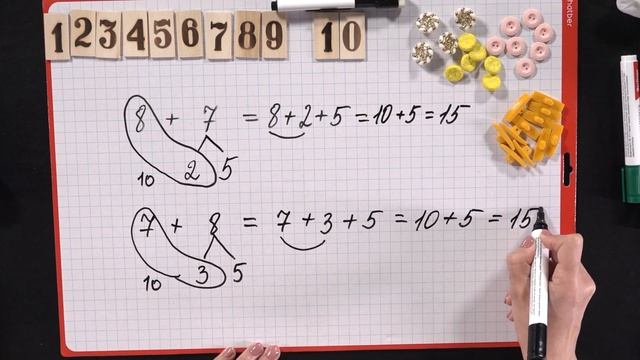 1 2 3 4 5 6 7 8 9 10
8 + 7 = 8+2+5 = 10+5 = 15
10 2 5
7 + 8 = 7+3+5 = 10+5 = 15
10 3 5